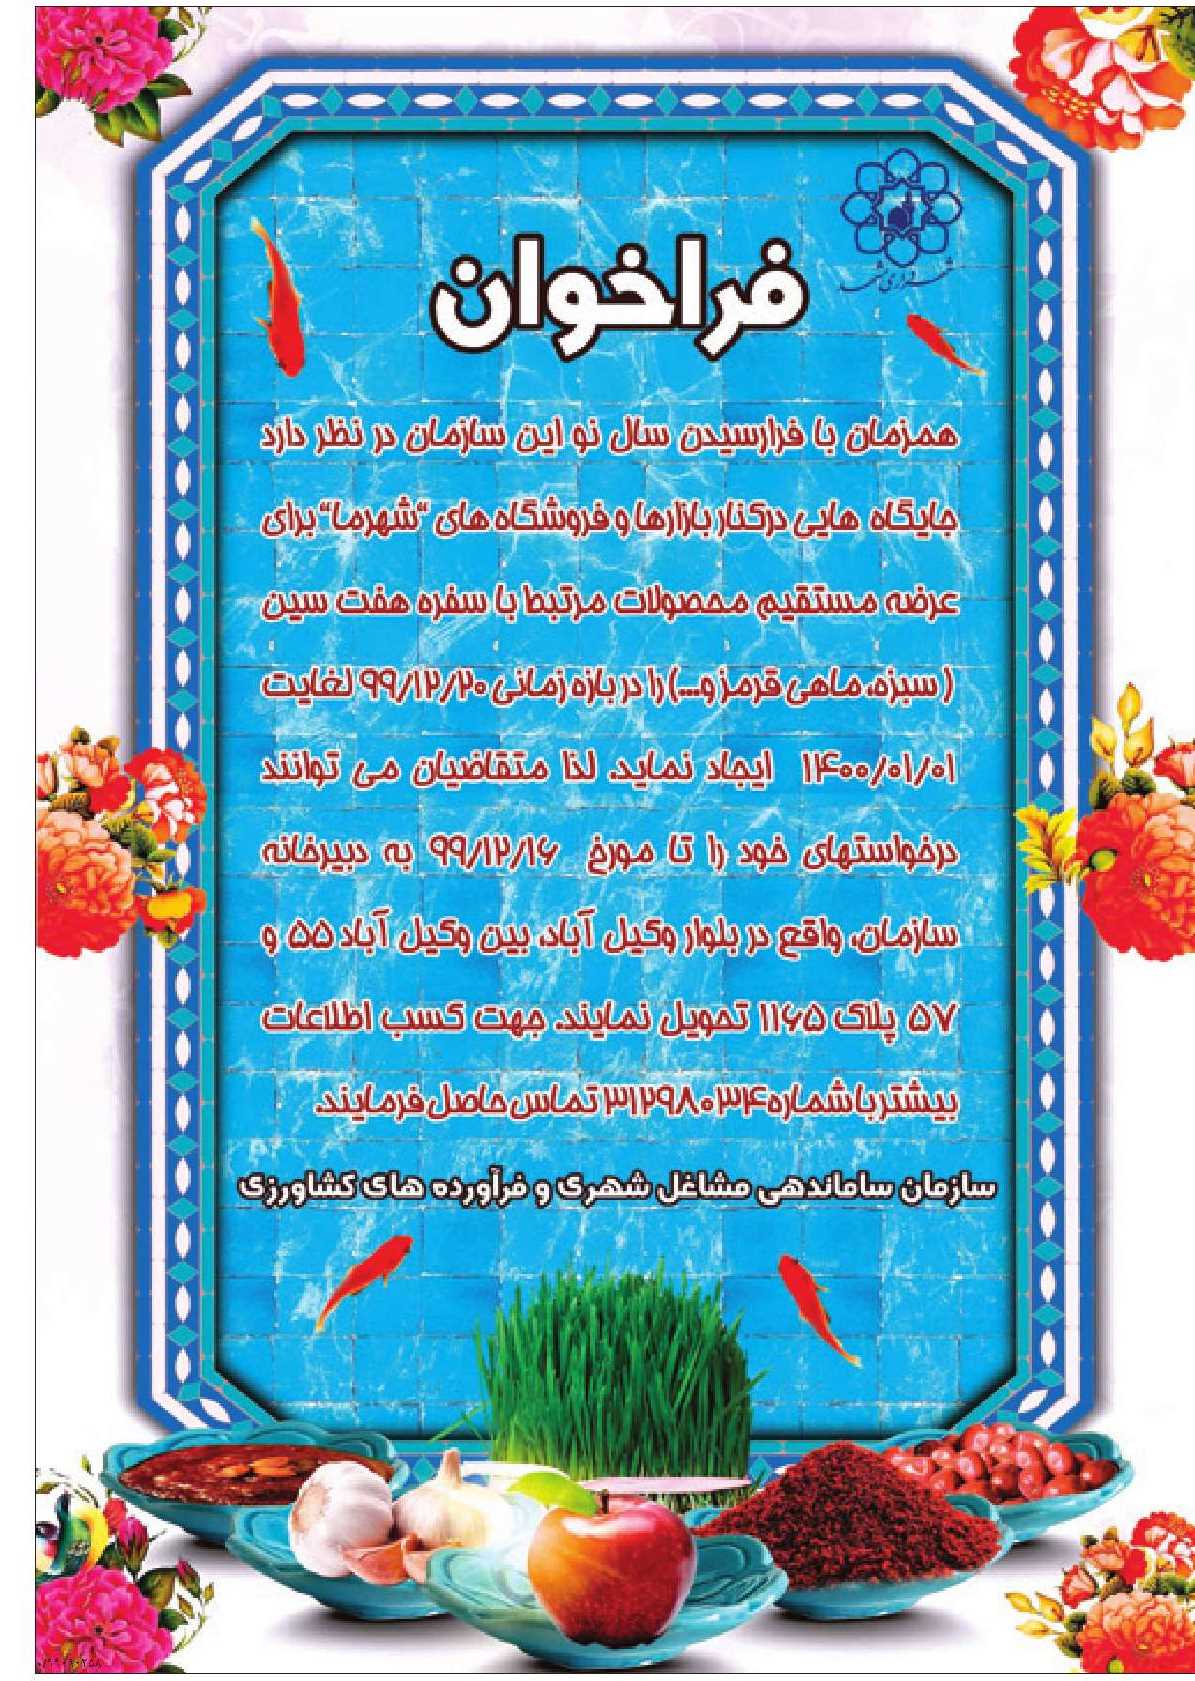 شهرداری مشهد
فراخوان
همزمان با فرارسیدن سال نو این سازمان در نظر دارد
جایگاه هایی درکنار بازارها و فروشگاه های "شهرما" برای
عرضه مستقیم محصولات مرتبط با سفره هفت سین
( سبزه، ماهی قرمز و...) را در بازه زمانی ۹۹/۱۲/۲۰ لغایت
۱۴۰۰/۰۱/۰۱ ایجاد نماید. لذا متقاضیان می توانند
درخواستهای خود را تا مورخ ۹۹/۱۲/۱۶ به دبیرخانه
سازمان، واقع در بلوار وکیل آباد، بین وکیل آباد ۵۵ و
۵۷ پلاک ۱۱۶۵ تحویل نمایند. جهت کسب اطلاعات
بیشتر با شماره ۳۱۲۹۸۰۳۴ تماس حاصل فرمایند.
سازمان ساماندهی مشاغل شهری و فرآورده های کشاورزی